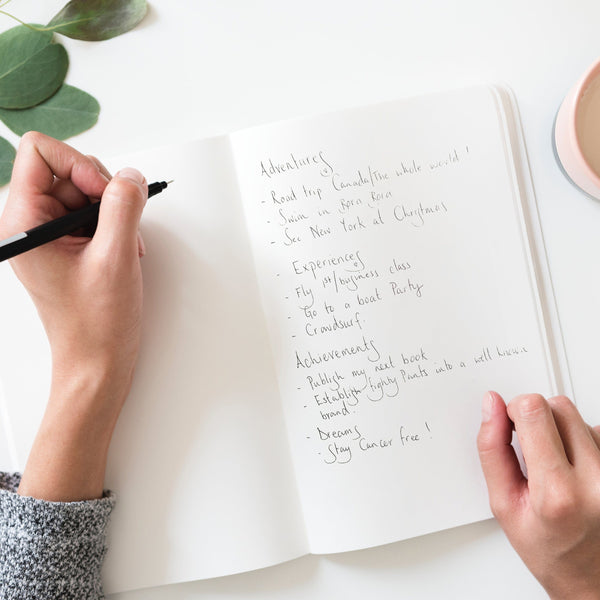 Adventures
- Road trip Canada/The whole world!
- Swim in Bora Bora
- See New York at Christmas
- Experiences
- Fly 1st/business class
- Go to a boat Party
- Crowdsurf.
Achievements
- Publish my next book
- Establish Eighty Paints into a well known
brand.
- Dreams
- Stay Cancer free!